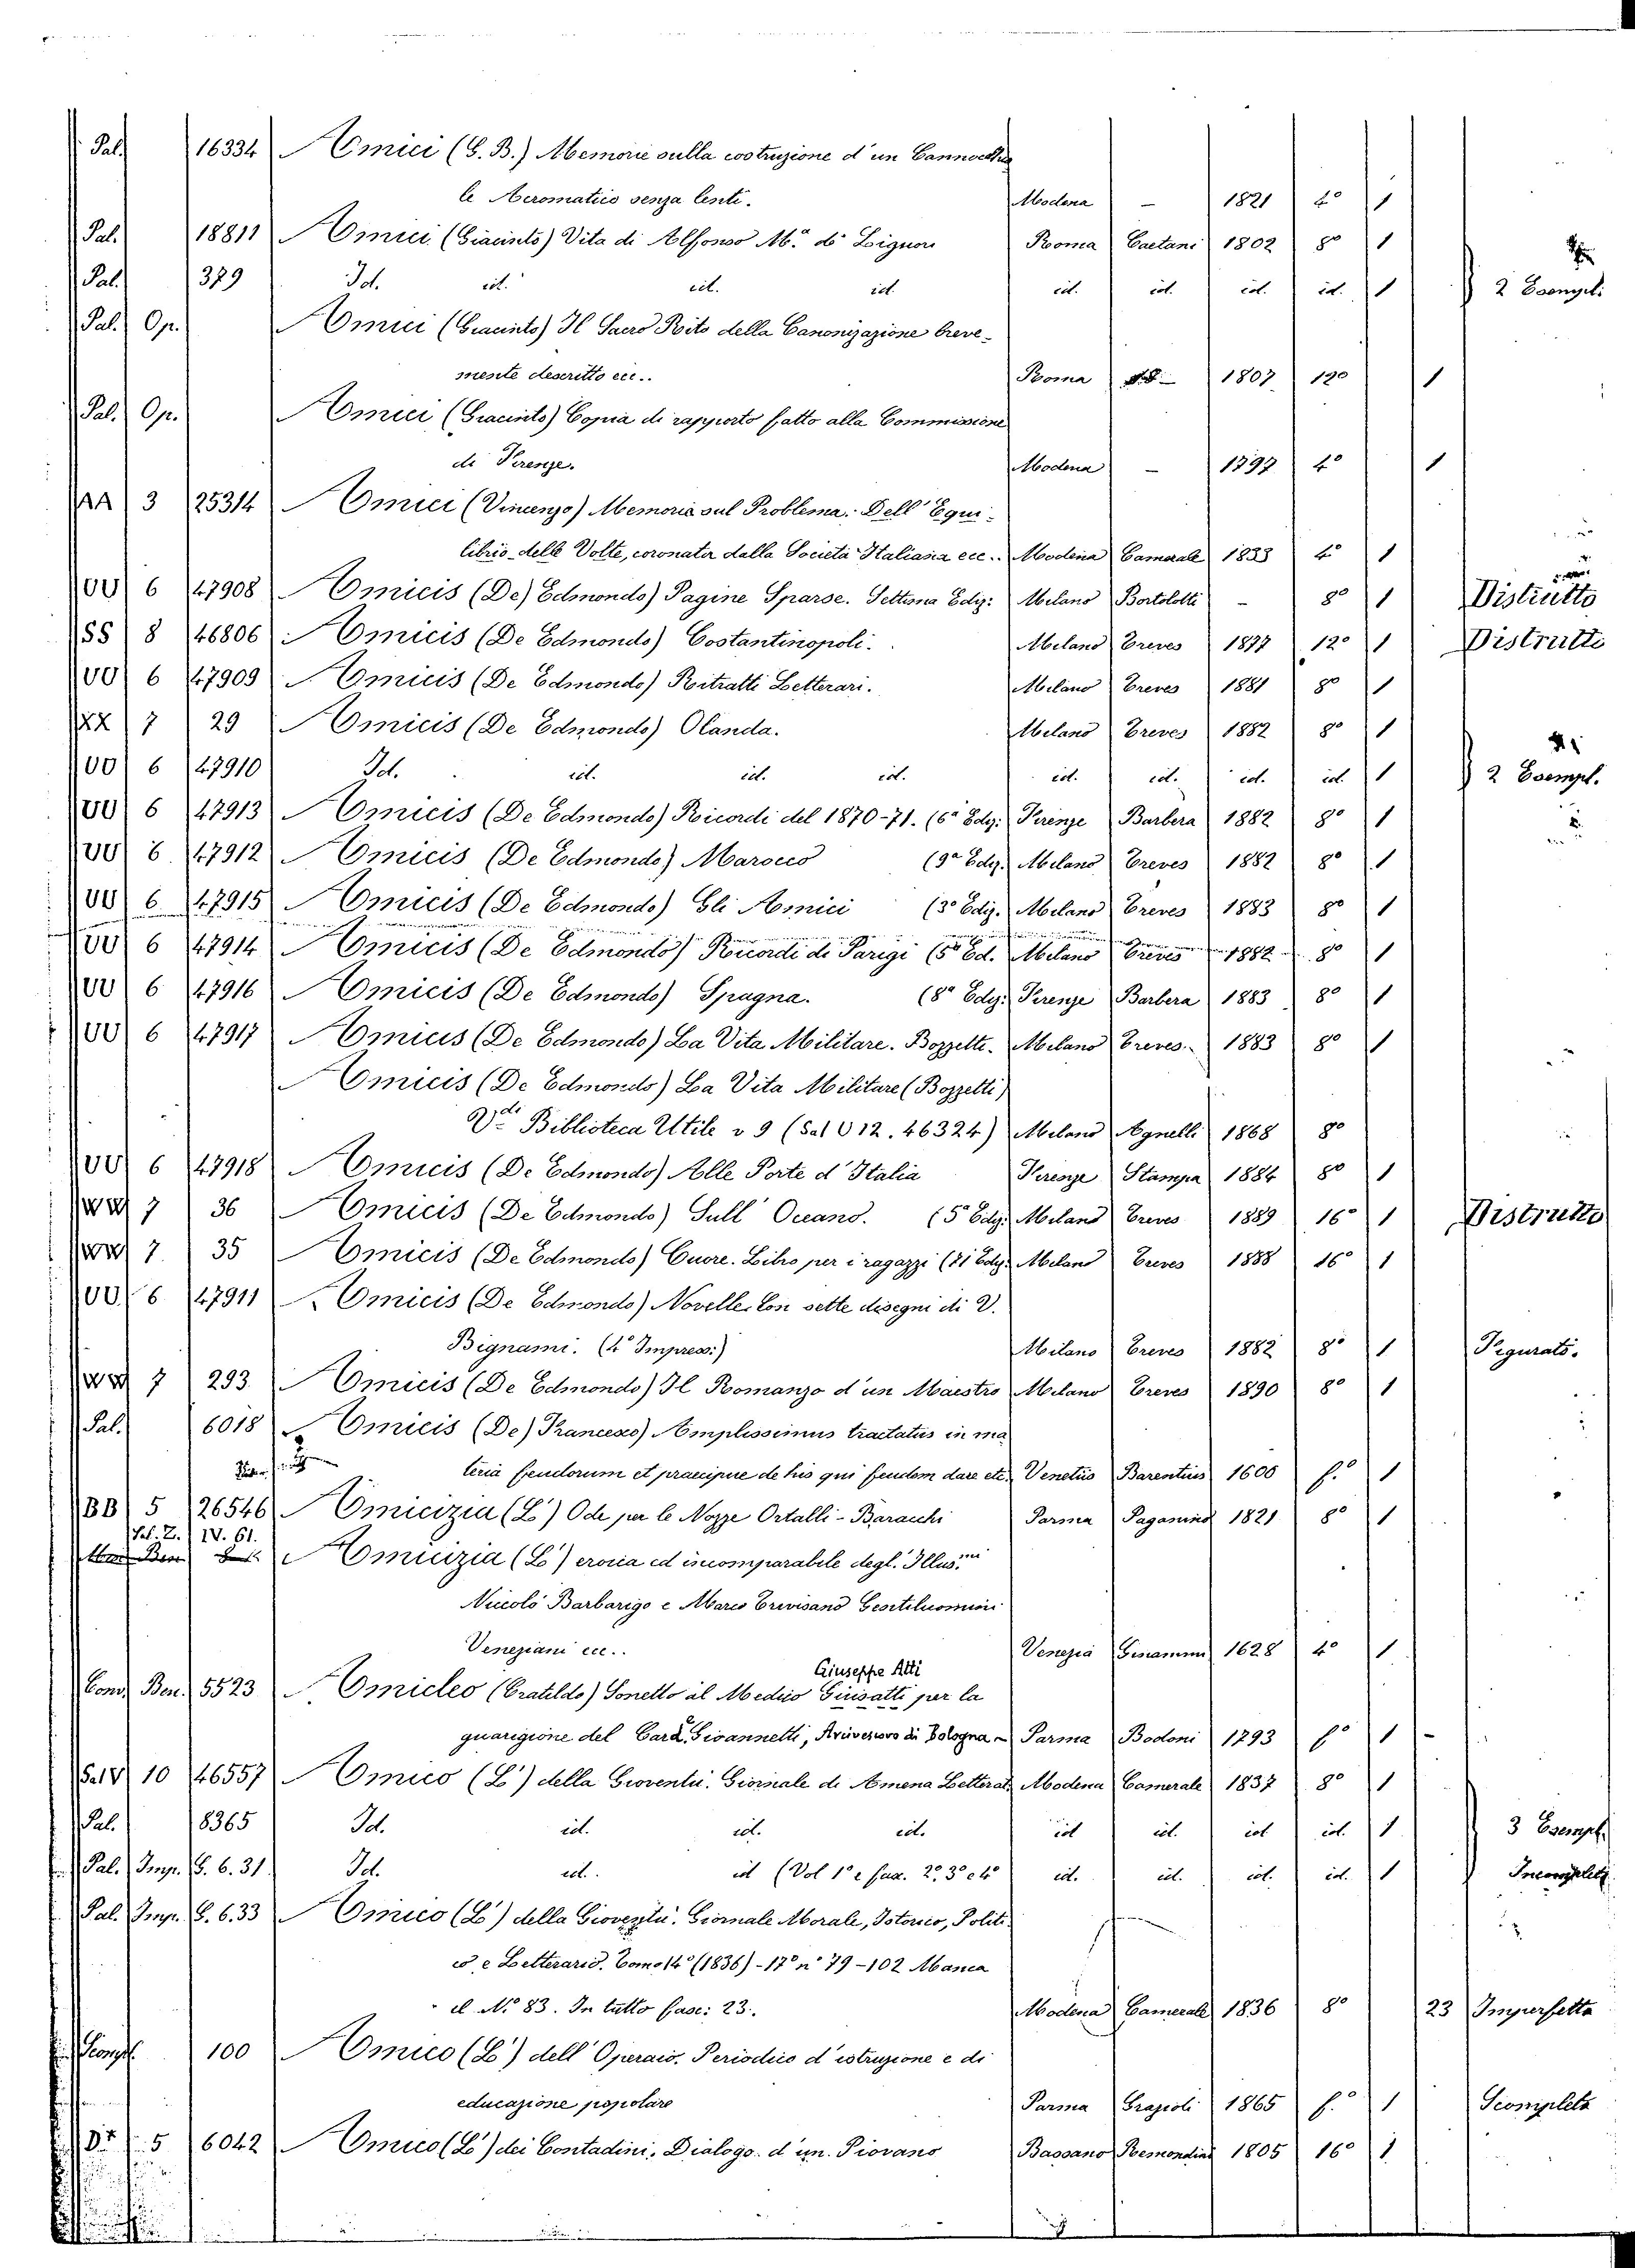 Pal. 16334 Amici (G. B.) Memorie sulla costruzione d'un Cannocchia
le Acromatico senza lenti. Modena — 1821 4° 1
Pal. 18811 Amici (Giacinto) Vita di Alfonso M.ª de Liguori Roma Caetani 1802 8° 1
Pal. 379 Id. id. id. id. id. id. id. id. 1 2 Esempl.
Pal. Op. Amici (Giacinto) Il Sacro Rito della Canonizazione breve-
mente descritto ecc.. Roma — 1807 12° 1
Pal. Op. Amici (Giacinto) Copia di rapporto fatto alla Commissione
di Firenze. Modena — 1797 4° 1
AA 3 25314 Amici (Vincenzo) Memoria sul Problema. Dell'Equi-
librio delle Volte, coronata dalla Società Italiana ecc.. Modena Camerale 1833 4° 1
UU 6 47908 Amicis (De) Edmondo) Pagine Sparse. Settima Ediz: Milano Bortolotti — 8° 1 Distrutto
SS 8 46806 Amicis (De Edmondo) Costantinopoli. Milano Treves 1877 12° 1 Distrutti
UU 6 47909 Amicis (De Edmondo) Ritratti Letterari. Milano Treves 1881 8° 1
XX 7 29 Amicis (De Edmondo) Olanda. Milano Treves 1882 8° 1
UU 6 47910 Id. id. id. id. id. id. id. id. 1 2 Esempl.
UU 6 47913 Amicis (De Edmondo) Ricordi del 1870-71. (6ª Ediz: Firenze Barbera 1882 8° 1
UU 6 47912 Amicis (De Edmondo) Marocco (9ª Ediz. Milano Treves 1882 8° 1
UU 6 47915 Amicis (De Edmondo) Gli Amici (3ª Ediz. Milano Treves 1883 8° 1
UU 6 47914 Amicis (De Edmondo) Ricordi di Parigi (5ª Ed. Milano Treves 1882 8° 1
UU 6 47916 Amicis (De Edmondo) Spagna. (8ª Ediz: Firenze Barbera 1883 8° 1
UU 6 47917 Amicis (De Edmondo) La Vita Militare. Bozzetti. Milano Treves. 1883 8° 1
Amicis (De Edmondo) La Vita Militare (Bozzetti)
V.di Biblioteca Utile v 9 (Sal U 12. 46324) Milano Agnelli 1868 8°
UU 6 47918 Amicis (De Edmondo) Alle Porte d'Italia Firenze Stampa 1884 8° 1
WW 7 36 Amicis (De Edmondo) Sull'Oceano. (5ª Ediz: Milano Treves 1889 16° 1 Distrutto
WW 7 35 Amicis (De Edmondo) Cuore. Libro per i ragazzi (71 Ediz: Milano Treves 1888 16° 1
UU 6 47911 Amicis (De Edmondo) Novelle. Con sette disegni di V.
Bignami. (4ª Impress:) Milano Treves 1882 8° 1 Figurato.
WW 7 293 Amicis (De Edmondo) Il Romanzo d'un Maestro Milano Treves 1890 8° 1
Pal. 6018 Amicis (De) Francesco) Amplissimus tractatus in ma
teria feudorum et praecipue de his qui feudum dare etc. Venetiis Barentius 1600 f.° 1
BB 5 26546 Amicizia (L') Ode per le Nozze Ortalli-Baracchi Parma Paganino 1821 8° 1
Sal. Z. IV. 61.
Amicizia (L') eroica ed incomparabile degl'Illus.mi
Niccolò Barbarigo e Marco Trivisano Gentiluomini
Veneziani ecc.. Venezia Ginammi 1628 4° 1
Giuseppe Atti
Cond. Ben. 5523 Amicleo (Cratildo) Sonetto al Medico Giusatti per la
guarigione del Card. Giovannetti, Arcivescovo di Bologna Parma Bodoni 1793 f.° 1
Sal V 10 46557 Amico (L') della Gioventù. Giornale di Amena Letterat. Modena Camerale 1837 8° 1
Pal. 8365 Id. id. id. id. id id. id id. 1 3 Esempl.
Pal. Imp. G. 6. 31 Id. id. id (Vol 1° e fasc. 2° 3° e 4° id. id. id. id. 1 Incompleti
Pal. Imp. G. 6. 33 Amico (L') della Gioventù. Giornale Morale, Istorico, Politi
co, e Letterario. Tomo 14° (1836) - 17° n° 79-102 Manca
il N° 83. In tutto fasc: 23. Modena Camerale 1836 8° 23 Imperfetto
100 Amico (L') dell'Operaio. Periodico d'istruzione e di
educazione popolare Parma Grazioli 1865 f.° 1 Scompleto
5 6042 Amico (L') dei Contadini. Dialogo d'un Piovano Bassano Remondini 1805 16° 1